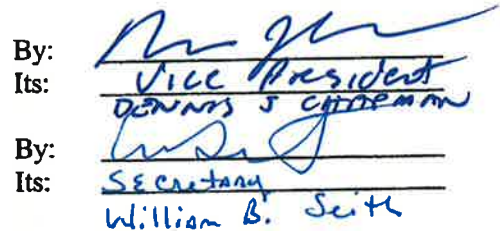 By:
Its: Vice President
DENNIS S CHAPMAN
By:
Its: Secretary
William B. Seith